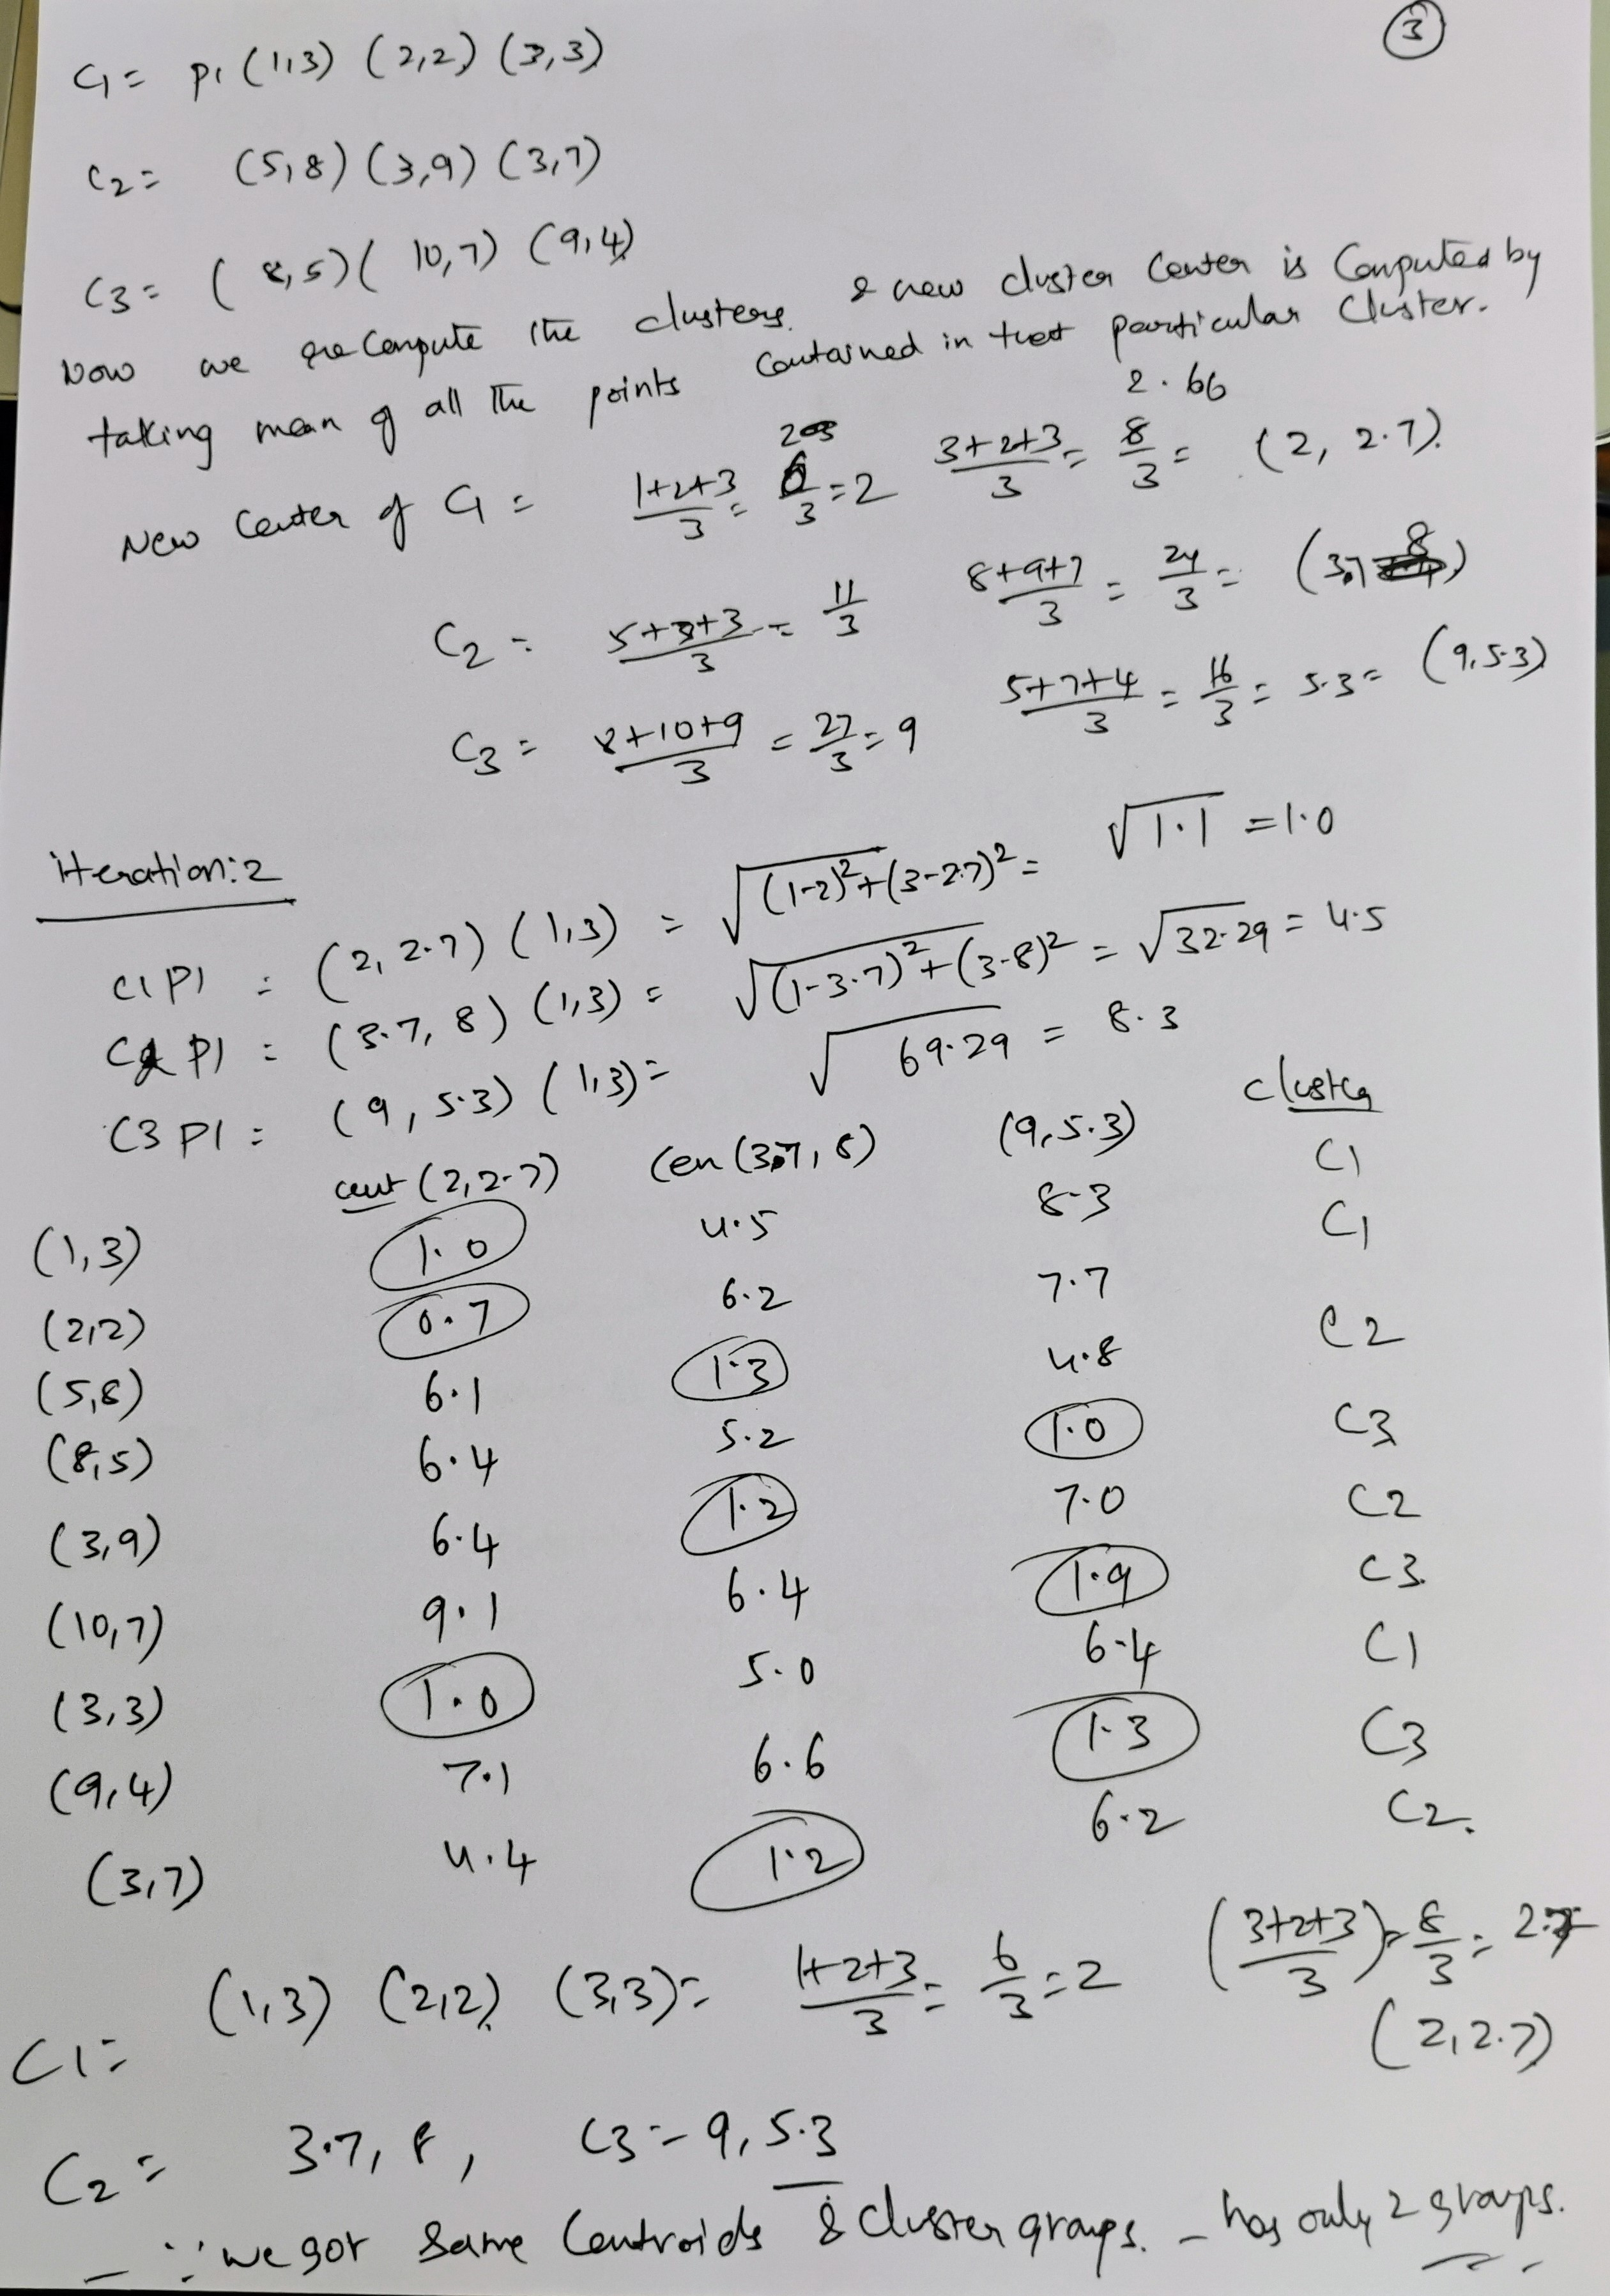 3
C1 = P1 (1,3) (2,2) (3,3)
C2 = (5,8) (3,9) (3,7)
C3 = (8,5) (10,7) (9,4)
Now we recompute the clusters. & new cluster center is computed by
taking mean of all the points contained in that particular cluster.
2.66
New center of C1 = 1+2+3/3 = 6/3 = 2 3+2+3/3 = 8/3 = (2, 2.7).
C2 = 5+3+3/3 = 11/3 8+9+7/3 = 24/3 = (3.7 8)
C3 = 8+10+9/3 = 27/3 = 9 5+7+4/3 = 16/3 = 5.3 = (9,5.3)
iteration:2
C1P1 : (2, 2.7) (1,3) = √(1-2)²+(3-2.7)² = √1.1 = 1.0
C2P1 : (3.7, 8) (1,3) = √(1-3.7)²+(3-8)² = √32.29 = 4.5
C3P1 : (9, 5.3) (1,3) = √69.29 = 8.3
cent (2,2.7) Cen (3.7, 8) (9,5.3) cluster
(1,3) 1.0 4.5 8.3 C1
(2,2) 0.7 6.2 7.7 C1
(5,8) 6.1 1.3 4.8 C2
(8,5) 6.4 5.2 1.0 C3
(3,9) 6.4 1.2 7.0 C2
(10,7) 9.1 6.4 1.9 C3.
(3,3) 1.0 5.0 6.4 C1
(9,4) 7.1 6.6 1.3 C3
(3,7) 4.4 1.2 6.2 C2.
C1 = (1,3) (2,2) (3,3) = 1+2+3/3 = 6/3 = 2 (3+2+3/3) = 8/3 = 2.7
(2, 2.7)
C2 = 3.7, 8, C3 = 9, 5.3
- ∵ we got same Centroids & cluster groups. - has only 2 groups.